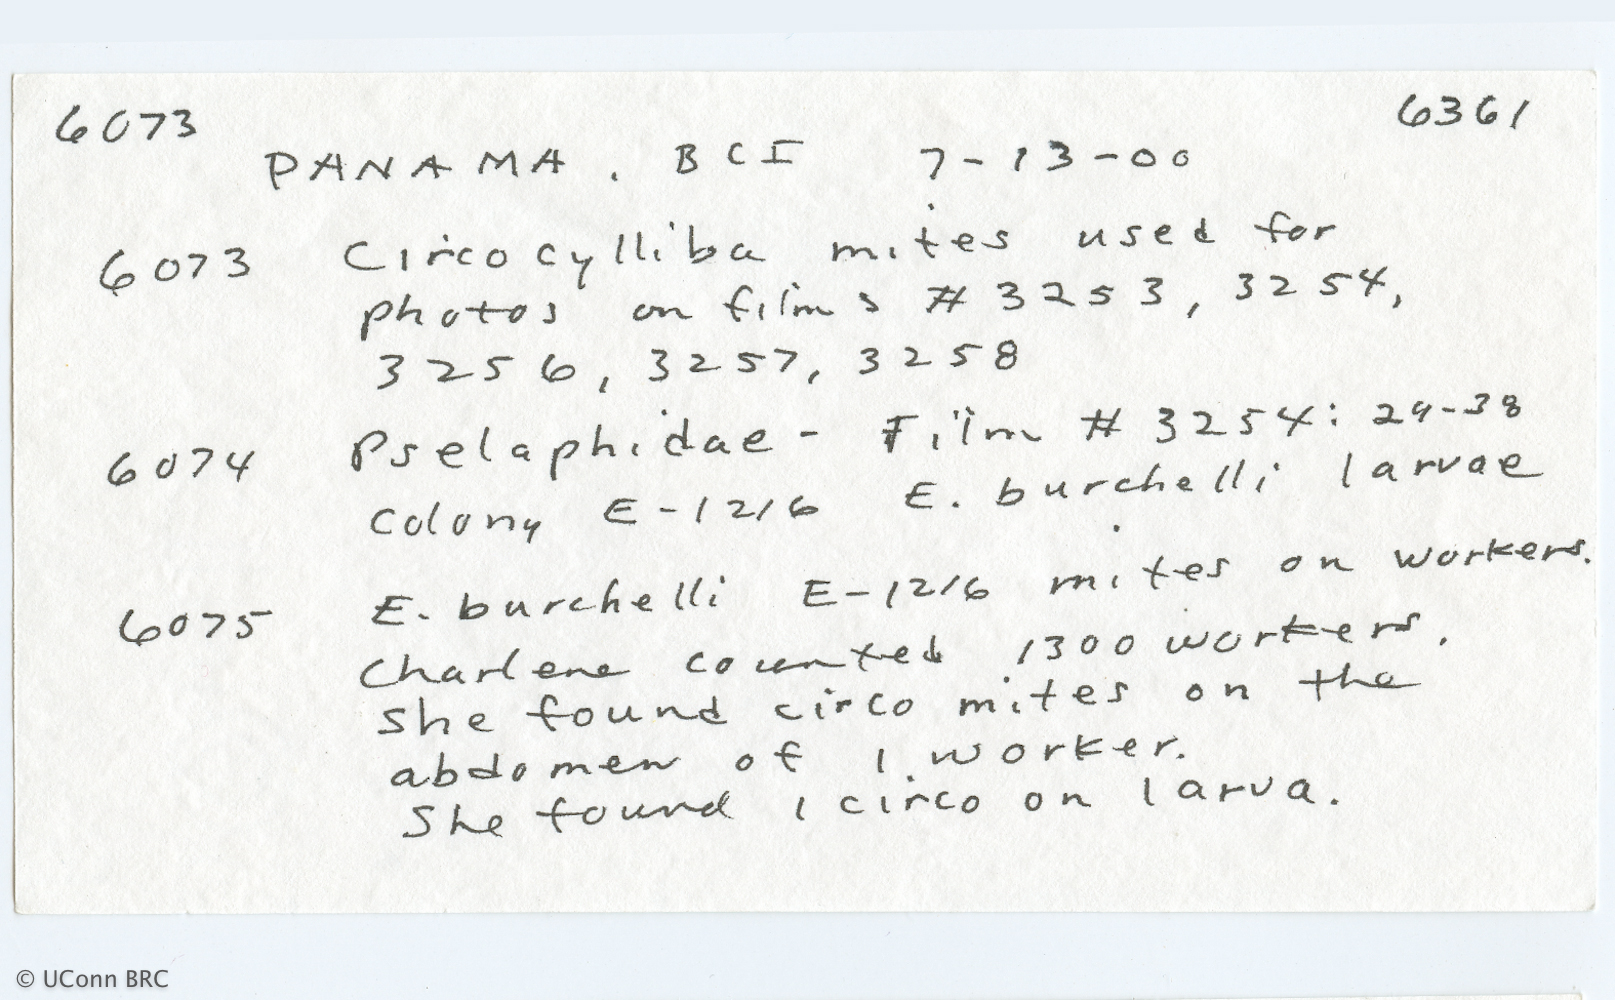 6073 6361
PANAMA. BCI 7-13-00
6073 Circocylliba mites used for
photos on films # 3253, 3254,
3256, 3257, 3258
6074 Pselaphidae - Film # 3254: 29-38
colony E-1216 E. burchelli larvae
6075 E. burchelli E-1216 mites on workers.
Charlene counted 1300 workers.
She found circo mites on the
abdomen of 1 worker.
She found 1 circo on larva.
© UConn BRC